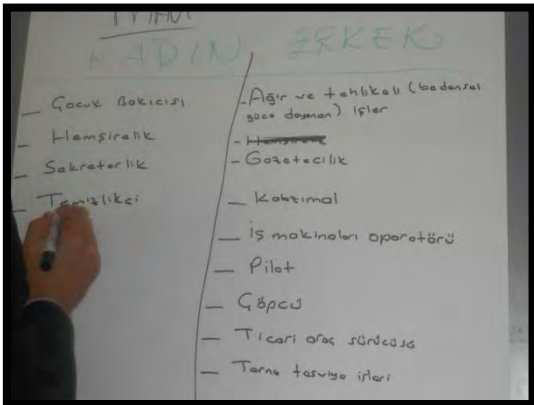 KADIN
ERKEK
_ Çocuk Bakıcısı
_ Hemşirelik
_ Sekreterlik
_ Temizlikçi
- Ağır ve tehlikeli (bedensel
güce dayanan) işler
- Gazetecilik
_ Kabzımal
_ iş makinaları operatörü
_ Pilot
_ Çöpçü
_ Ticari araç sürücüsü
_ Torna tesviye işleri